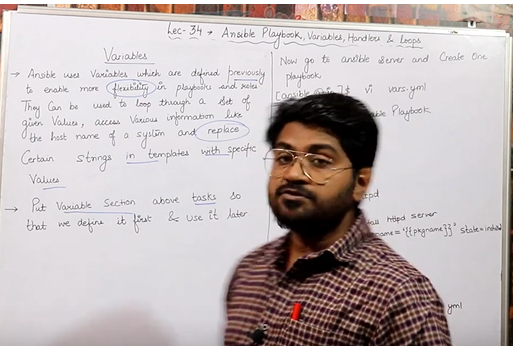 Lec-34 → Ansible Playbook, Variables, Handlers & loops
Variables
→ Ansible uses Variables which are defined previously
to enable more flexibility in playbooks and roles
They Can be used to loop through a set of
given Values, access Various information like
the host name of a system and replace
Certain strings in templates with specific
Values
→ Put Variable Section above tasks so
that we define it first & use it later
Now go to ansible server and Create One
playbook
[ansible @ip]$ vi vars.yml
Playbook
httpd server
name='{{pkgname}}' state=
yml